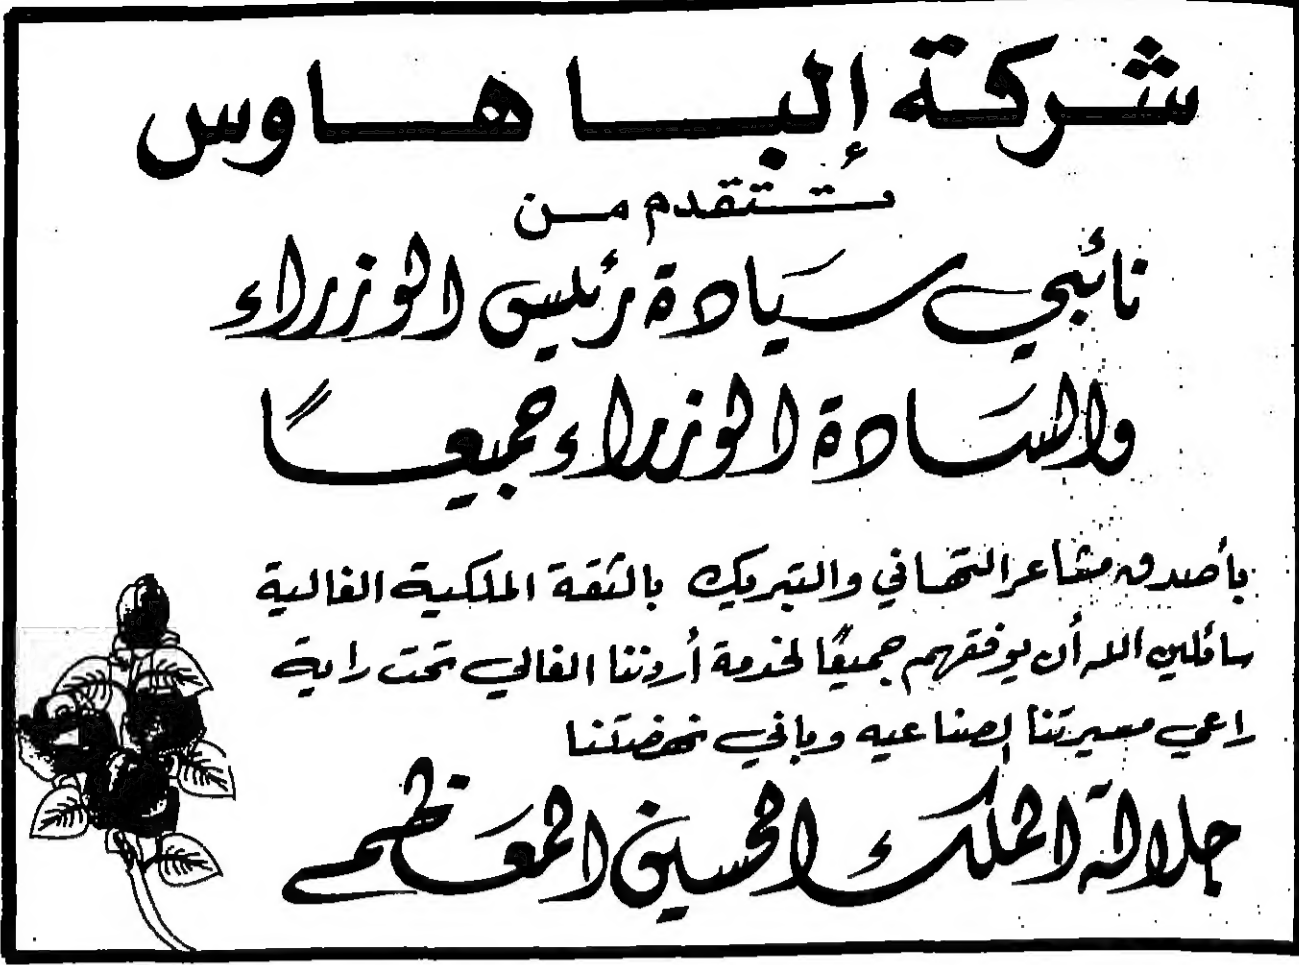 شركة إلبا هاوس
تتقدم من
نائبي سيادة رئيس الوزراء
والسادة الوزراء جميعاً
بأصدق مشاعر التهاني والتبريك بالثقة الملكية الغالية
سائلين الله أن يوفقهم جميعًا لخدمة أردننا الغالي تحت راية
راعي مسيرتنا الصناعيه وباني نهضتنا
جلالة الملك الحسين المعظم